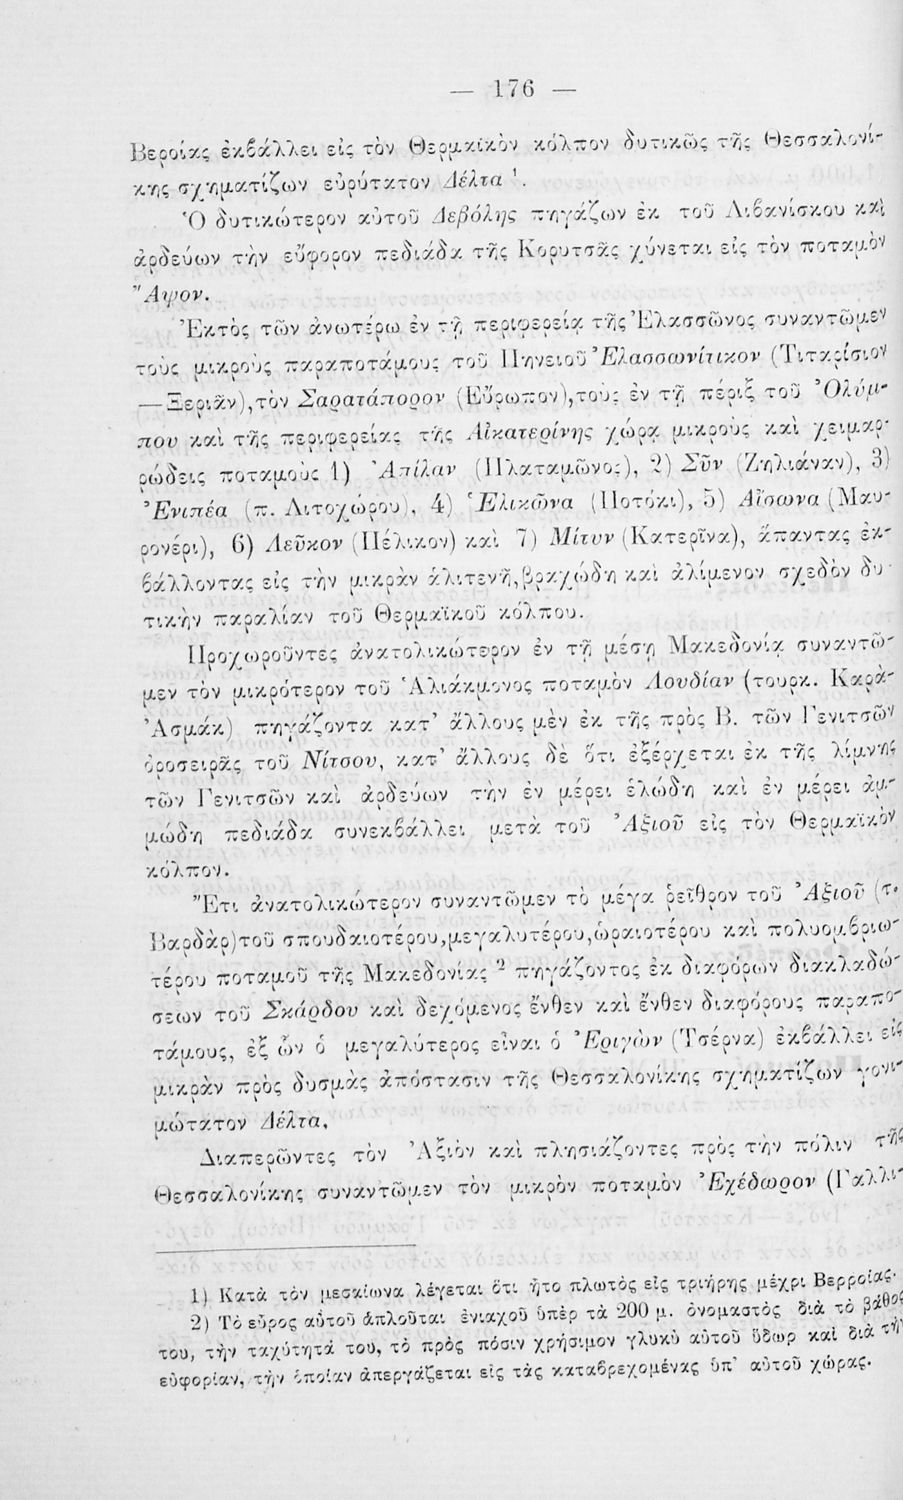 — 176 —
Βεροίας ἐκβάλλει εἰς τὸν Θερμαϊκὸν κόλπον δυτικῶς τῆς Θεσσαλονί-
κης σχηματίζων εὐρύτατον Δέλτα ¹.
Ὁ δυτικώτερον αὐτοῦ Δεβόλης πηγάζων ἐκ τοῦ Λιβανίσκου καὶ
ἀρδεύων τὴν εὔφορον πεδιάδα τῆς Κορυτσᾶς χύνεται εἰς τὸν ποταμὸν
Ἄψον.
Ἐκτὸς τῶν ἀνωτέρω ἐν τῇ περιφερείᾳ τῆς Ἐλασσῶνος συναντῶμεν
τοὺς μικροὺς παραποτάμους τοῦ Πηνειοῦ Ἐλασσωνίτικον (Τιταρίσιον
—Ξεριᾶν), τὸν Σαρατάπορον (Εὔρωπον), τοὺς ἐν τῇ πέριξ τοῦ Ὀλύμ-
που καὶ τῆς περιφερείας τῆς Αἰκατερίνης χώρᾳ μικροὺς καὶ χειμαρ-
ρώδεις ποταμοὺς 1) Ἀπίλαν (Πλαταμῶνος), 2) Σῦν (Ζηλιάναν), 3)
Ἐνιπέα (π. Λιτοχώρου), 4) Ἑλικῶνα (Ποτόκι), 5) Αἴσωνα (Μαυ-
ρονέρι), 6) Λεῦκον (Πέλικον) καὶ 7) Μίτυν (Κατερῖνα), ἅπαντας ἐκ-
βάλλοντας εἰς τὴν μικρὰν ἁλιτενῆ, βραχώδη καὶ ἀλίμενον σχεδὸν δυ-
τικὴν παραλίαν τοῦ Θερμαϊκοῦ κόλπου.
Προχωροῦντες ἀνατολικώτερον ἐν τῇ μέσῃ Μακεδονίᾳ συναντῶ-
μεν τὸν μικρότερον τοῦ Ἁλιάκμονος ποταμὸν Λουδίαν (τουρκ. Καρὰ-
Ἀσμάκ) πηγάζοντα κατ' ἄλλους μὲν ἐκ τῆς πρὸς Β. τῶν Γενιτσῶν
ὀροσειρᾶς τοῦ Νίτσου, κατ' ἄλλους δὲ ὅτι ἐξέρχεται ἐκ τῆς λίμνης
τῶν Γενιτσῶν καὶ ἀρδεύων τὴν ἐν μέρει ἑλώδη καὶ ἐν μέρει ἀμ-
μώδη πεδιάδα συνεκβάλλει μετὰ τοῦ Ἀξιοῦ εἰς τὸν Θερμαϊκὸν
κόλπον.
Ἔτι ἀνατολικώτερον συναντῶμεν τὸ μέγα ῥεῖθρον τοῦ Ἀξιοῦ (τ.
Βαρδὰρ) τοῦ σπουδαιοτέρου, μεγαλυτέρου, ὡραιοτέρου καὶ πολυομβριω-
τέρου ποταμοῦ τῆς Μακεδονίας ² πηγάζοντος ἐκ διαφόρων διακλαδώ-
σεων τοῦ Σκάρδου καὶ δεχόμενος ἔνθεν καὶ ἔνθεν διαφόρους παραπο-
τάμους, ἐξ ὧν ὁ μεγαλύτερος εἶναι ὁ Ἐριγὼν (Τσέρνα) ἐκβάλλει εἰς
μικρὰν πρὸς δυσμὰς ἀπόστασιν τῆς Θεσσαλονίκης σχηματίζων γονι-
μώτατον Δέλτα.
Διαπερῶντες τὸν Ἀξιὸν καὶ πλησιάζοντες πρὸς τὴν πόλιν τῆς
Θεσσαλονίκης συναντῶμεν τὸν μικρὸν ποταμὸν Ἐχέδωρον (Γαλλι-
1) Κατὰ τὸν μεσαίωνα λέγεται ὅτι ἦτο πλωτὸς εἰς τριήρης μέχρι Βερροίας.
2) Τὸ εὖρος αὐτοῦ ἁπλοῦται ἐνιαχοῦ ὑπὲρ τὰ 200 μ. ὀνομαστὸς διὰ τὸ βάθος
του, τὴν ταχύτητά του, τὸ πρὸς πόσιν χρήσιμον γλυκὺ αὐτοῦ ὕδωρ καὶ διὰ τὴν
εὐφορίαν, τὴν ὁποίαν ἀπεργάζεται εἰς τὰς καταβρεχομένας ὑπ' αὐτοῦ χώρας.